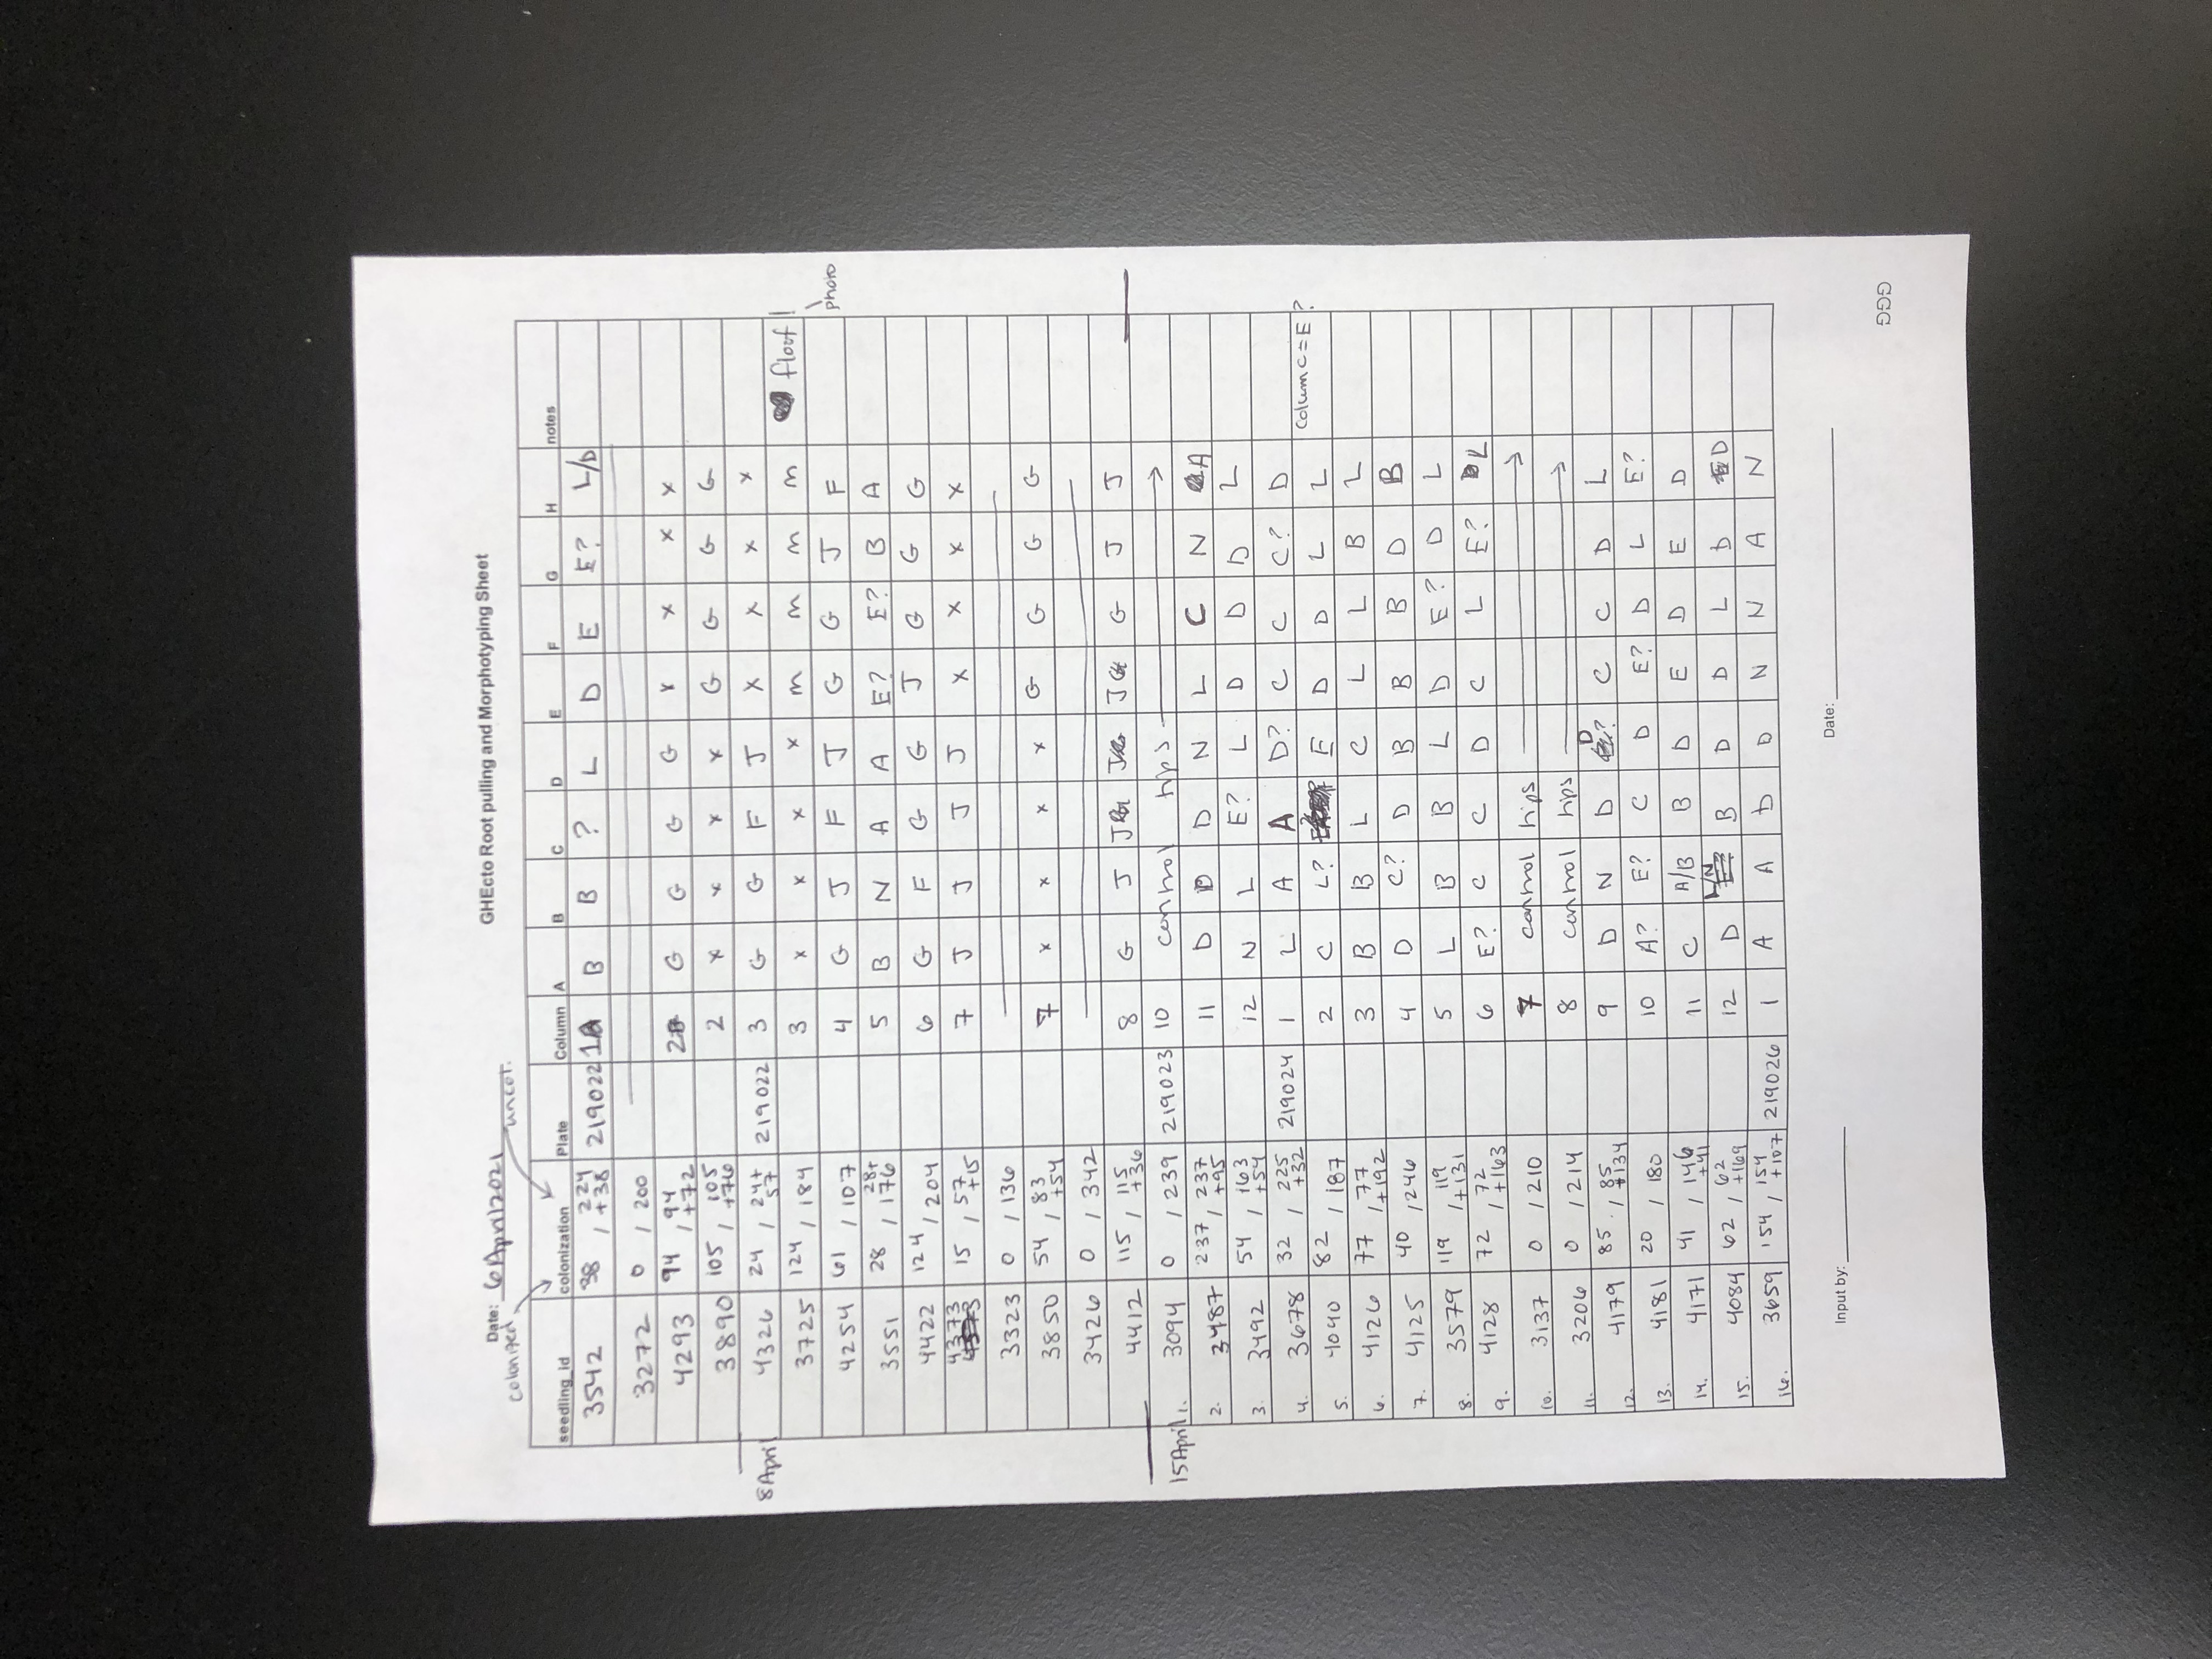 GHEcto Root pulling and Morphotyping Sheet
Date: 6 April 2021
colonized uncol.
seedling_id colonization Plate Column A B C D E F G H notes
3542 38 / 224 +38 219022 1 B B ? L D E E? L/D
3272 0 / 200
4293 94 / 94 +72 2 G G G G x x x x
3890 105 / 105 +76 2 x x x x G G G G
8 April 4326 24 / 24+ 57 219022 3 G G F J x x x x
3725 124 / 184 3 x x x x m m m m floof!
photo
4254 61 / 107 4 G J F J G G J F
3551 28 / 28+ 176 5 B N A A E? E? B A
4422 124 / 204 6 G F G G J G G G
4373 15 / 57 +15 7 J J J J x x x x
3323 0 / 136
3850 54 / 83 +54 7 x x x x G G G G
3426 0 / 342
4412 115 / 115 +36 8 G J J J J G J J
15 April 1. 3094 0 / 239 219023 10 control tips
2. 3487 237 / 237 +95 11 D D D N L C N A
3. 3492 54 / 163 +54 12 N L E? L D D D L
4. 3678 32 / 225 +32 219024 1 L A A D? C C C? D
5. 4040 82 / 187 2 C L? E D D L L Colum C = E?
6. 4126 77 / 77 +192 3 B B L C L L B L
7. 4125 40 / 246 4 D C? D B B B D B
8. 3579 119 / 119 +131 5 L B B L D E? D L
9. 4128 72 / 72 +163 6 E? C C D C L E? L
10. 3137 0 / 210 7 control tips
11. 3206 0 / 214 8 control tips
12. 4179 85 / 85 +134 9 D N D D ? C C D L
13. 4181 20 / 180 10 A? E? C D E? D L E?
14. 4171 41 / 146 +41 11 C A/B B D E D E D
15. 4084 62 / 62 +169 12 D L/N B D D L D D
16. 3659 154 / 154 +107 219026 1 A A D D N N A N
Input by: Date:
GGG